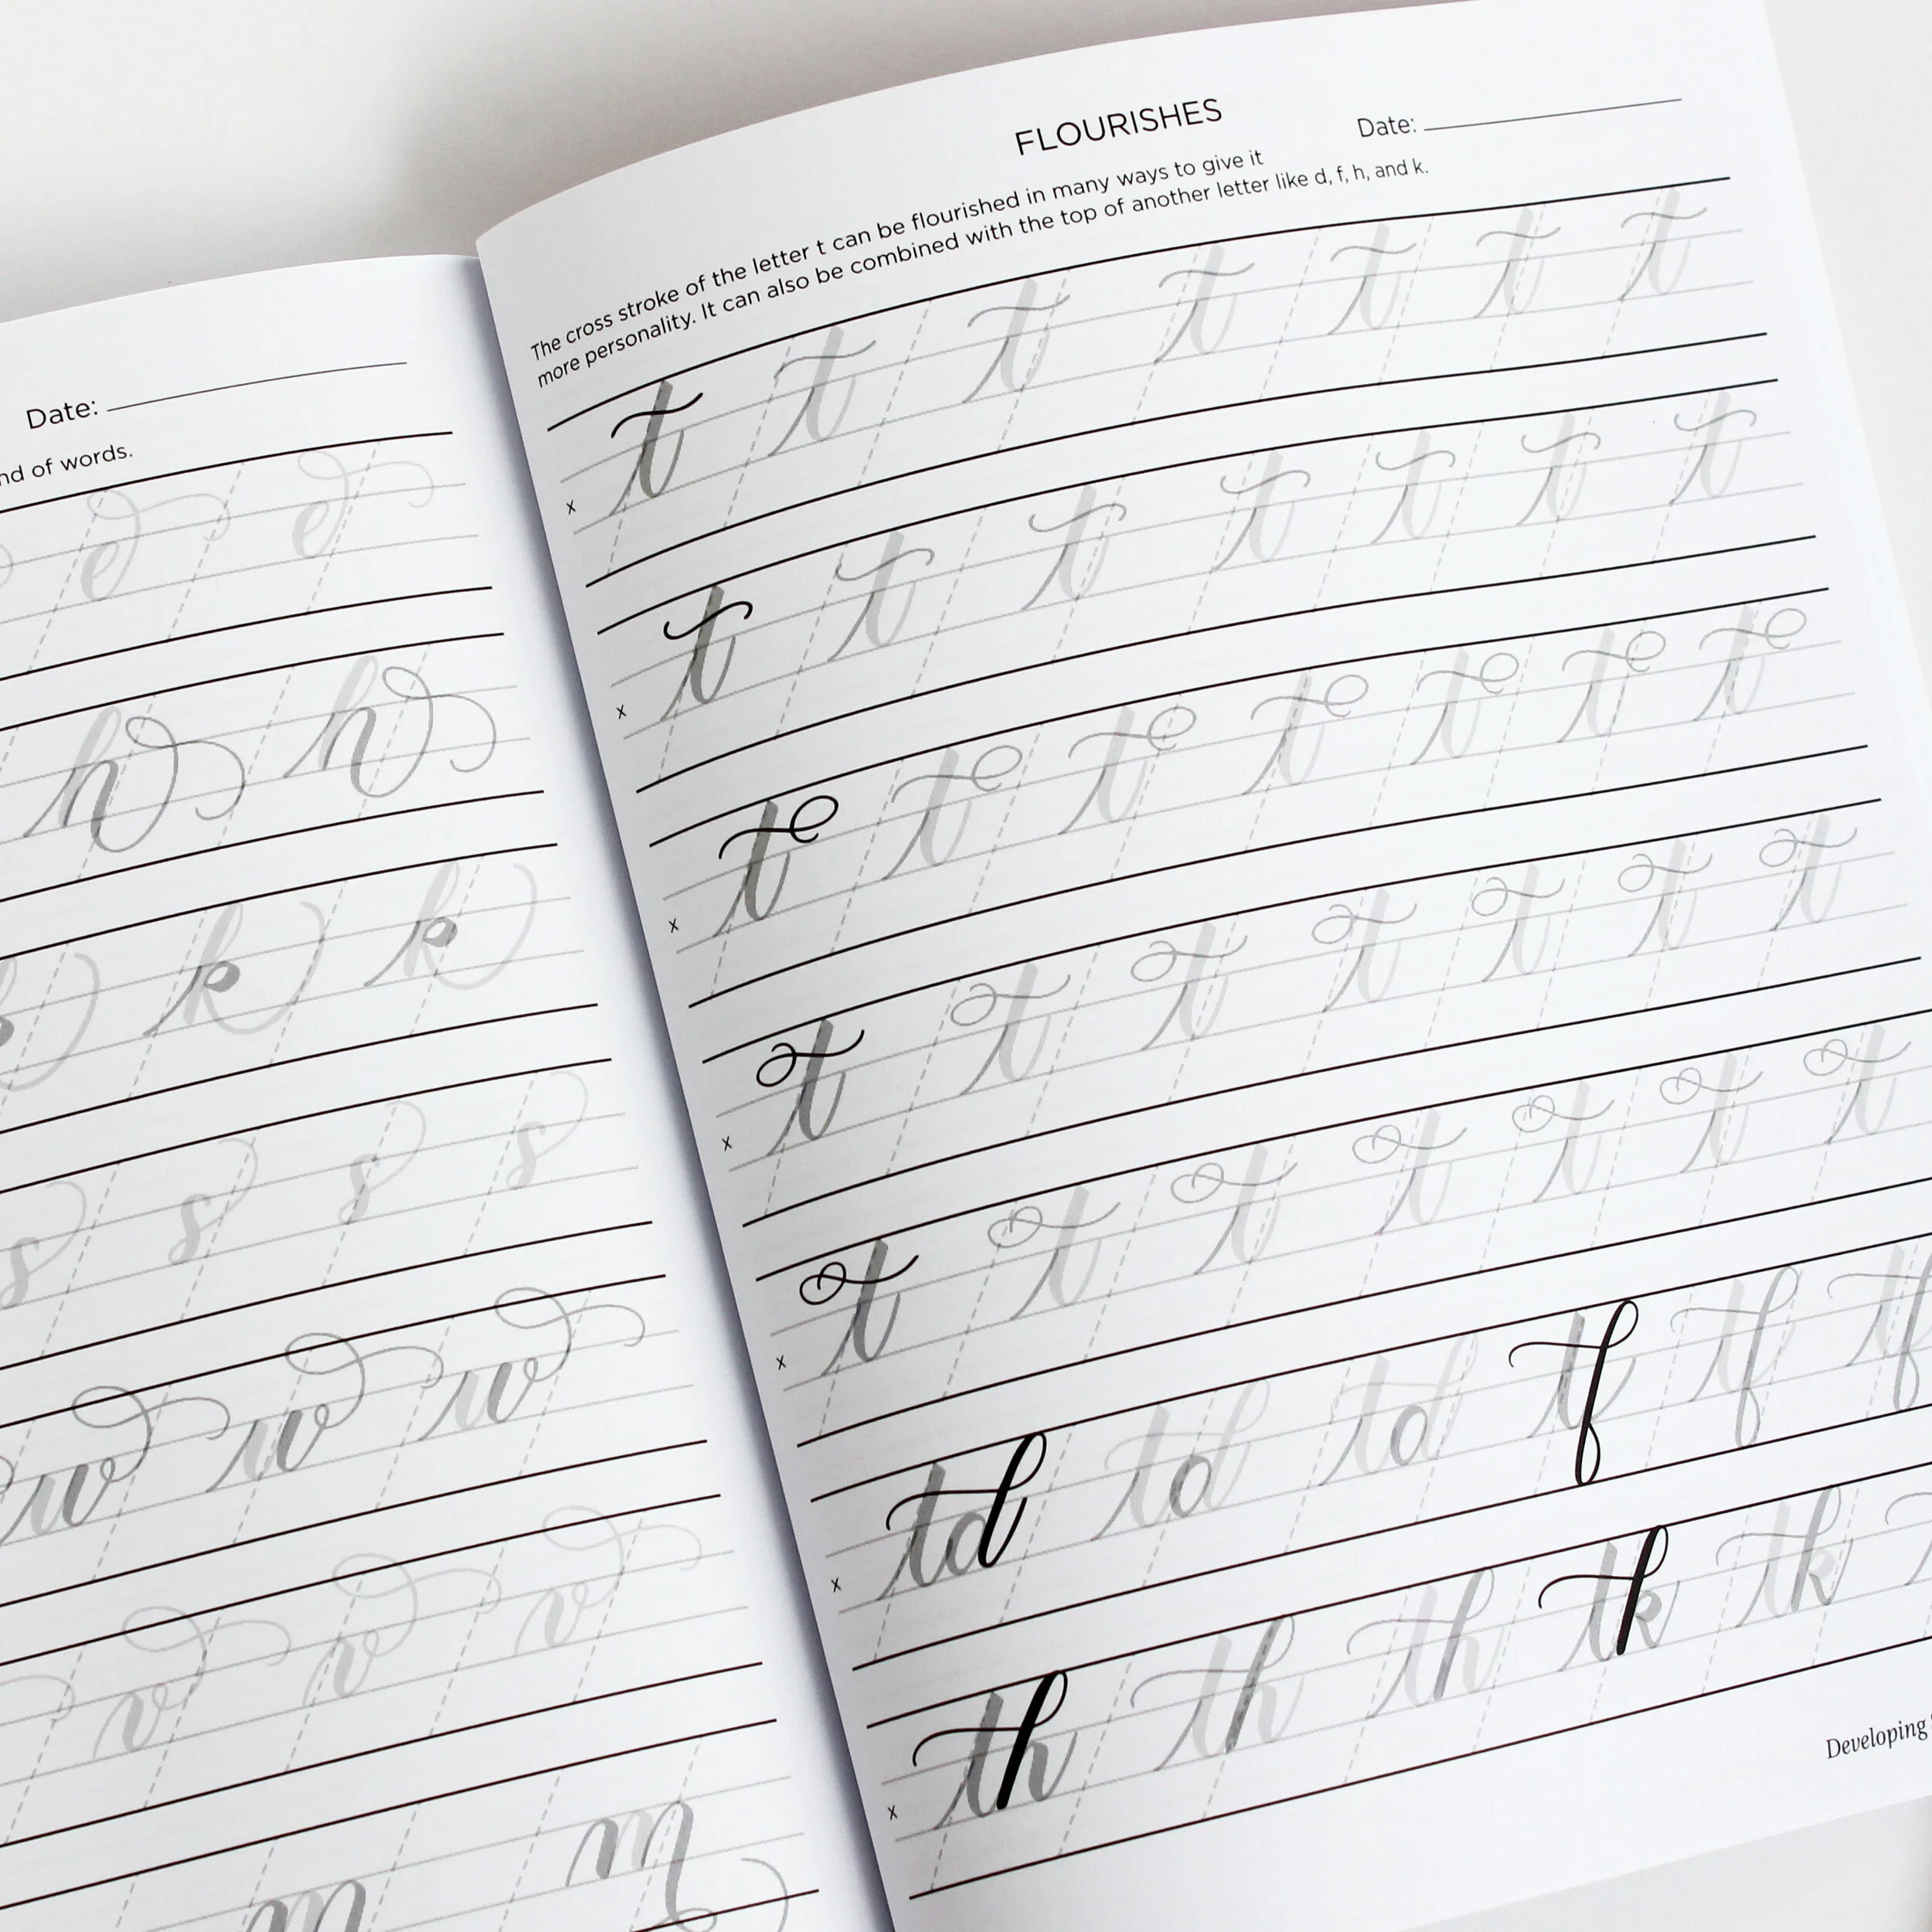 Date:
nd of words.
e e
h h
k k
s s s
w w w
v v v
m m
FLOURISHES
Date:
The cross stroke of the letter t can be flourished in many ways to give it
more personality. It can also be combined with the top of another letter like d, f, h, and k.
x t t t t t t t
x t t t t t t t
x t t t t t t t
x t t t t t t t
x t t t t t t t
x td td td tf tf tf
x th th th tk tk
Developing